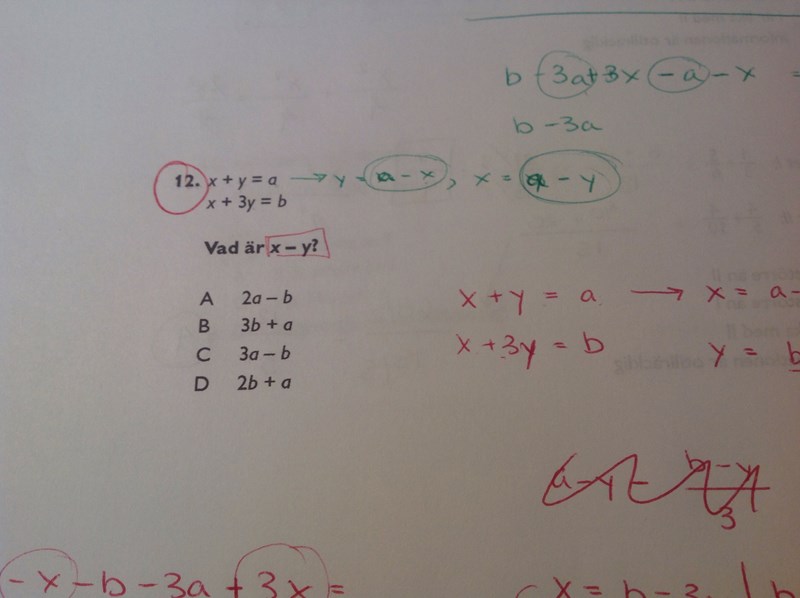 b - 3a + 3x - a - x =
b - 3a
12. x + y = a → y = a - x, x = a - y
x + 3y = b
Vad är x – y?
A 2a – b
B 3b + a
C 3a – b
D 2b + a
x + y = a → x = a -
x + 3y = b y = b
a - y - b - y
3
- x - b - 3a + 3x =
x = b - 3